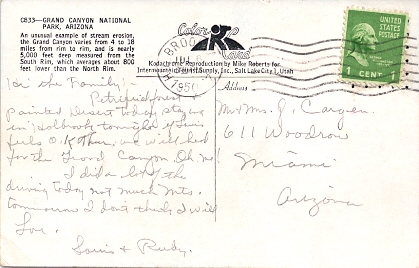 C833—GRAND CANYON NATIONAL
PARK, ARIZONA
An unusual example of stream erosion,
the Grand Canyon varies from 4 to 18
miles from rim to rim, and is nearly
5,000 feet deep measured from the
South Rim, which averages about 800
feet lower than the North Rim.
Color Card
BROO
1950
Kodachrome Reproduction by Mike Roberts for
Intermountain Tourist Supply, Inc., Salt Lake City 1, Utah
Address
1 CENT 1
the Family:-
Petrified forest
Painted Desert today staying
in Holbrook tonight if Louis
feels O.K. then we will head
for the Grand Canyon Oh. me
I did a lot of the
driving today not much Mts.
tomorrow I don't think I will
Lov.
Louis & Rudy.
Mr & Mrs. J. Cargen
611 Woodrow
Miami
Arizona